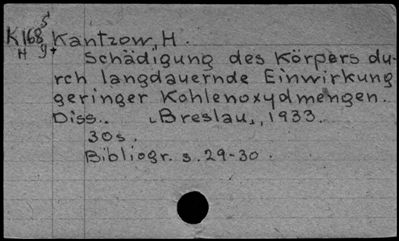 K168 Kantzow, H.
H
Schädigung des Körpers du-
rch langdauernde Einwirkung
geringer Kohlenoxydmengen.
Diss.. Breslau, 1933.
30s.
Bibliogr. s. 29-30.